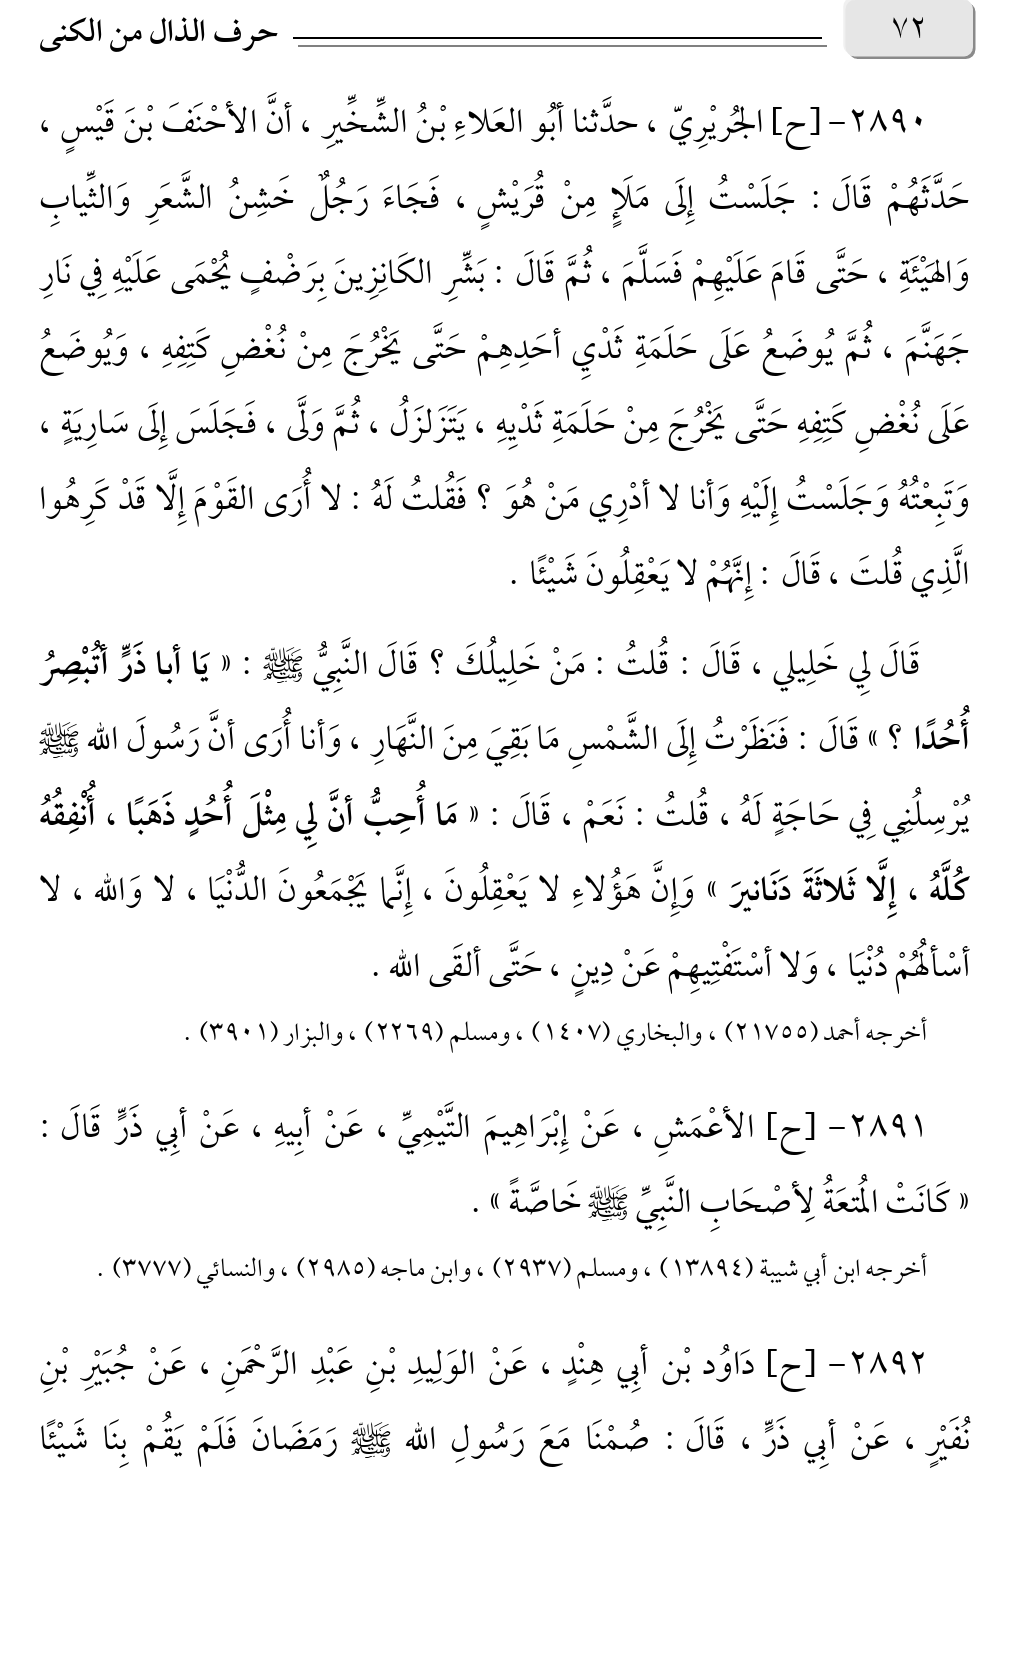 ٧٢
حرف الذال من الكنى
٢٨٩٠- [ح] الجُرَيْرِيّ ، حدَّثنا أبُو العَلاءِ بْنُ الشِّخِّيرِ ، أنَّ الأحْنَفَ بْنَ قَيْسٍ ،
حَدَّثَهُمْ قَالَ : جَلَسْتُ إِلَى مَلَإٍ مِنْ قُرَيْشٍ ، فَجَاءَ رَجُلٌ خَشِنُ الشَّعَرِ وَالثِّيابِ
وَالهَيْئَةِ ، حَتَّى قَامَ عَلَيْهِمْ فَسَلَّمَ ، ثُمَّ قَالَ : بَشِّرِ الكَانِزِينَ بِرَضْفٍ يُحْمَى عَلَيْهِ فِي نَارِ
جَهَنَّمَ ، ثُمَّ يُوضَعُ عَلَى حَلَمَةِ ثَدْيِ أحَدِهِمْ حَتَّى يَخْرُجَ مِنْ نُغْضِ كَتِفِهِ ، وَيُوضَعُ
عَلَى نُغْضِ كَتِفِهِ حَتَّى يَخْرُجَ مِنْ حَلَمَةِ ثَدْيِهِ ، يَتَزَلزَلُ ، ثُمَّ وَلَّى ، فَجَلَسَ إِلَى سَارِيَةٍ ،
وَتَبِعْتُهُ وَجَلَسْتُ إِلَيْهِ وَأنا لا أدْرِي مَنْ هُوَ ؟ فَقُلتُ لَهُ : لا أُرَى القَوْمَ إِلَّا قَدْ كَرِهُوا
الَّذِي قُلتَ ، قَالَ : إِنَّهُمْ لا يَعْقِلُونَ شَيْئًا .
قَالَ لِي خَلِيلِي ، قَالَ : قُلتُ : مَنْ خَلِيلُكَ ؟ قَالَ النَّبِيُّ ﷺ : « يَا أبا ذَرٍّ أتُبْصِرُ
أُحُدًا ؟ » قَالَ : فَنَظَرْتُ إِلَى الشَّمْسِ مَا بَقِيَ مِنَ النَّهَارِ ، وَأنا أُرَى أنَّ رَسُولَ الله ﷺ
يُرْسِلُنِي فِي حَاجَةٍ لَهُ ، قُلتُ : نَعَمْ ، قَالَ : « مَا أُحِبُّ أنَّ لِي مِثْلَ أُحُدٍ ذَهَبًا ، أُنْفِقُهُ
كُلَّهُ ، إِلَّا ثَلاثَةَ دَنَانيرَ » وَإِنَّ هَؤُلاءِ لا يَعْقِلُونَ ، إِنَّما يَجْمَعُونَ الدُّنْيَا ، لا وَالله ، لا
أسْألُهُمْ دُنْيَا ، وَلا أسْتَفْتِيهِمْ عَنْ دِينٍ ، حَتَّى ألقَى الله .
أخرجه أحمد (٢١٧٥٥) ، والبخاري (١٤٠٧) ، ومسلم (٢٢٦٩) ، والبزار (٣٩٠١) .
٢٨٩١- [ح] الأعْمَشِ ، عَنْ إِبْرَاهِيمَ التَّيْمِيِّ ، عَنْ أبِيهِ ، عَنْ أبي ذَرٍّ قَالَ :
« كَانَتْ المُتعَةُ لِأصْحَابِ النَّبِيِّ ﷺ خَاصَّةً » .
أخرجه ابن أبي شيبة (١٣٨٩٤) ، ومسلم (٢٩٣٧) ، وابن ماجه (٢٩٨٥) ، والنسائي (٣٧٧٧) .
٢٨٩٢- [ح] دَاوُد بْن أبِي هِنْدٍ ، عَنْ الوَلِيدِ بْنِ عَبْدِ الرَّحْمَنِ ، عَنْ جُبَيْرِ بْنِ
نُفَيْرٍ ، عَنْ أبِي ذَرٍّ ، قَالَ : صُمْنَا مَعَ رَسُولِ الله ﷺ رَمَضَانَ فَلَمْ يَقُمْ بِنَا شَيْئًا